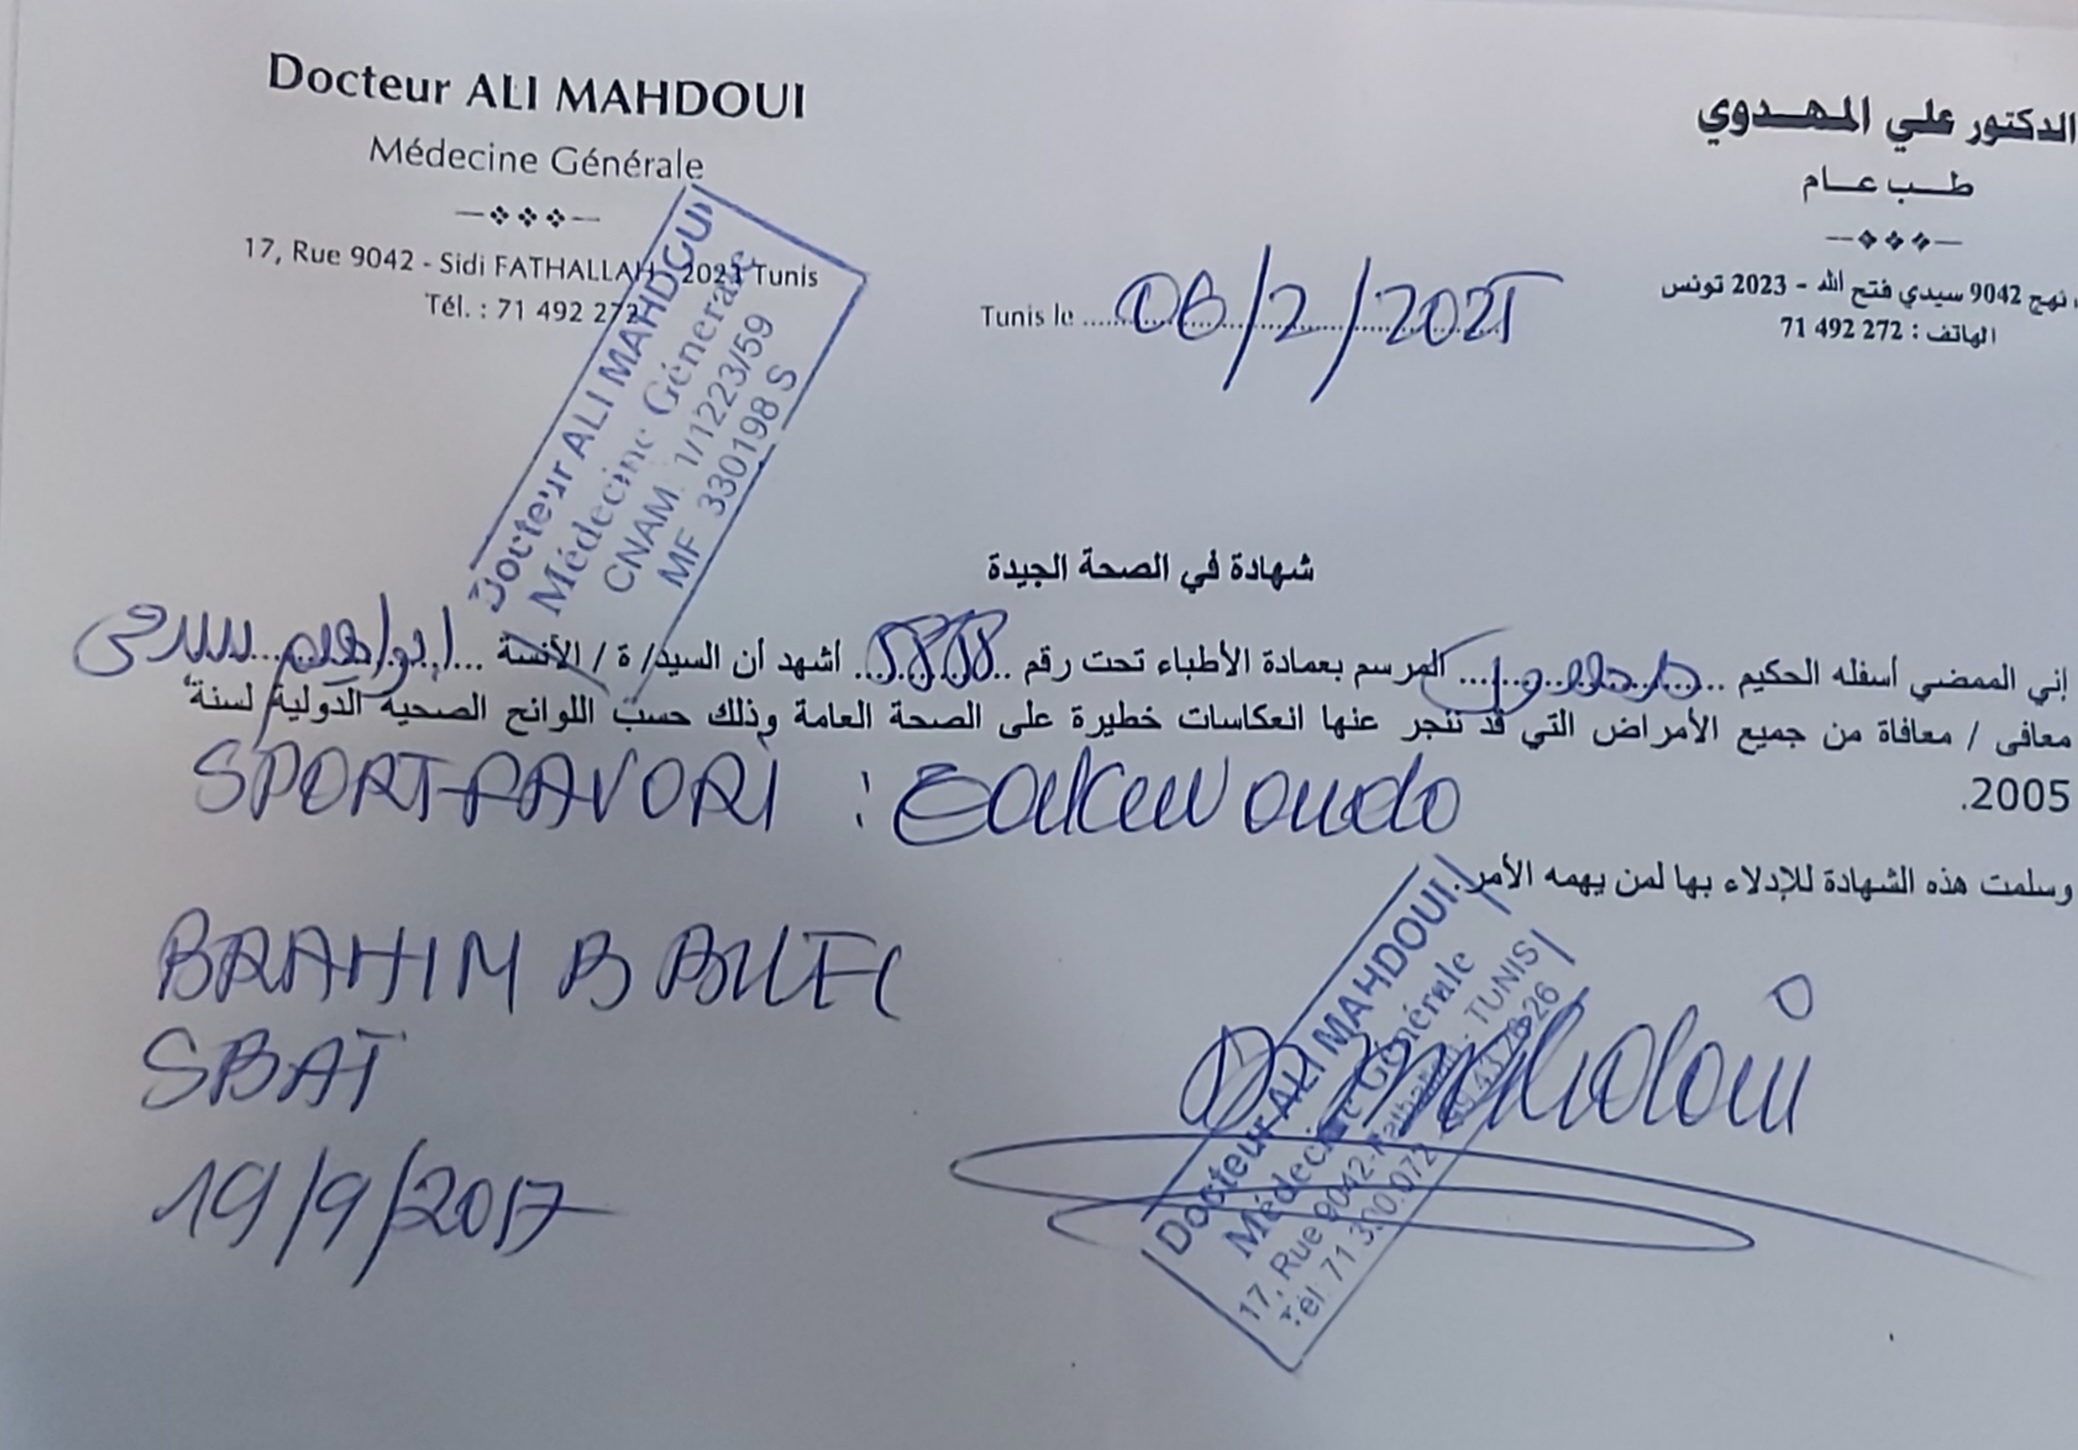 Docteur ALI MAHDOUI
Médecine Générale
17, Rue 9042 - Sidi FATHALLAH 2023 Tunis
Tél. : 71 492 272
الدكتور علي المهدوي
طب عام
نهج 9042 سيدي فتح الله - 2023 تونس
الهاتف : 272 492 71
Tunis le 06/2/2025
Docteur ALI MAHDOUI
Médecine Générale
CNAM 1/1223/59
MF 330198 S
شهادة في الصحة الجيدة
إني الممضي أسفله الحكيم المرسم بعمادة الأطباء تحت رقم أشهد أن السيد/ ة / الأنسة
معافى / معافاة من جميع الأمراض التي قد تنجر عنها انعكاسات خطيرة على الصحة العامة وذلك حسب اللوائح الصحية الدولية لسنة
2005.
SPORT FAVORI :
وسلمت هذه الشهادة للإدلاء بها لمن يهمه الأمر.
BRAHIM B
SBAI
19/9/2017
Dr Mahdoui
Docteur ALI MAHDOUI
Médecine Générale
17, Rue 9042 - Fathallah - TUNIS
Tél 71 390.072